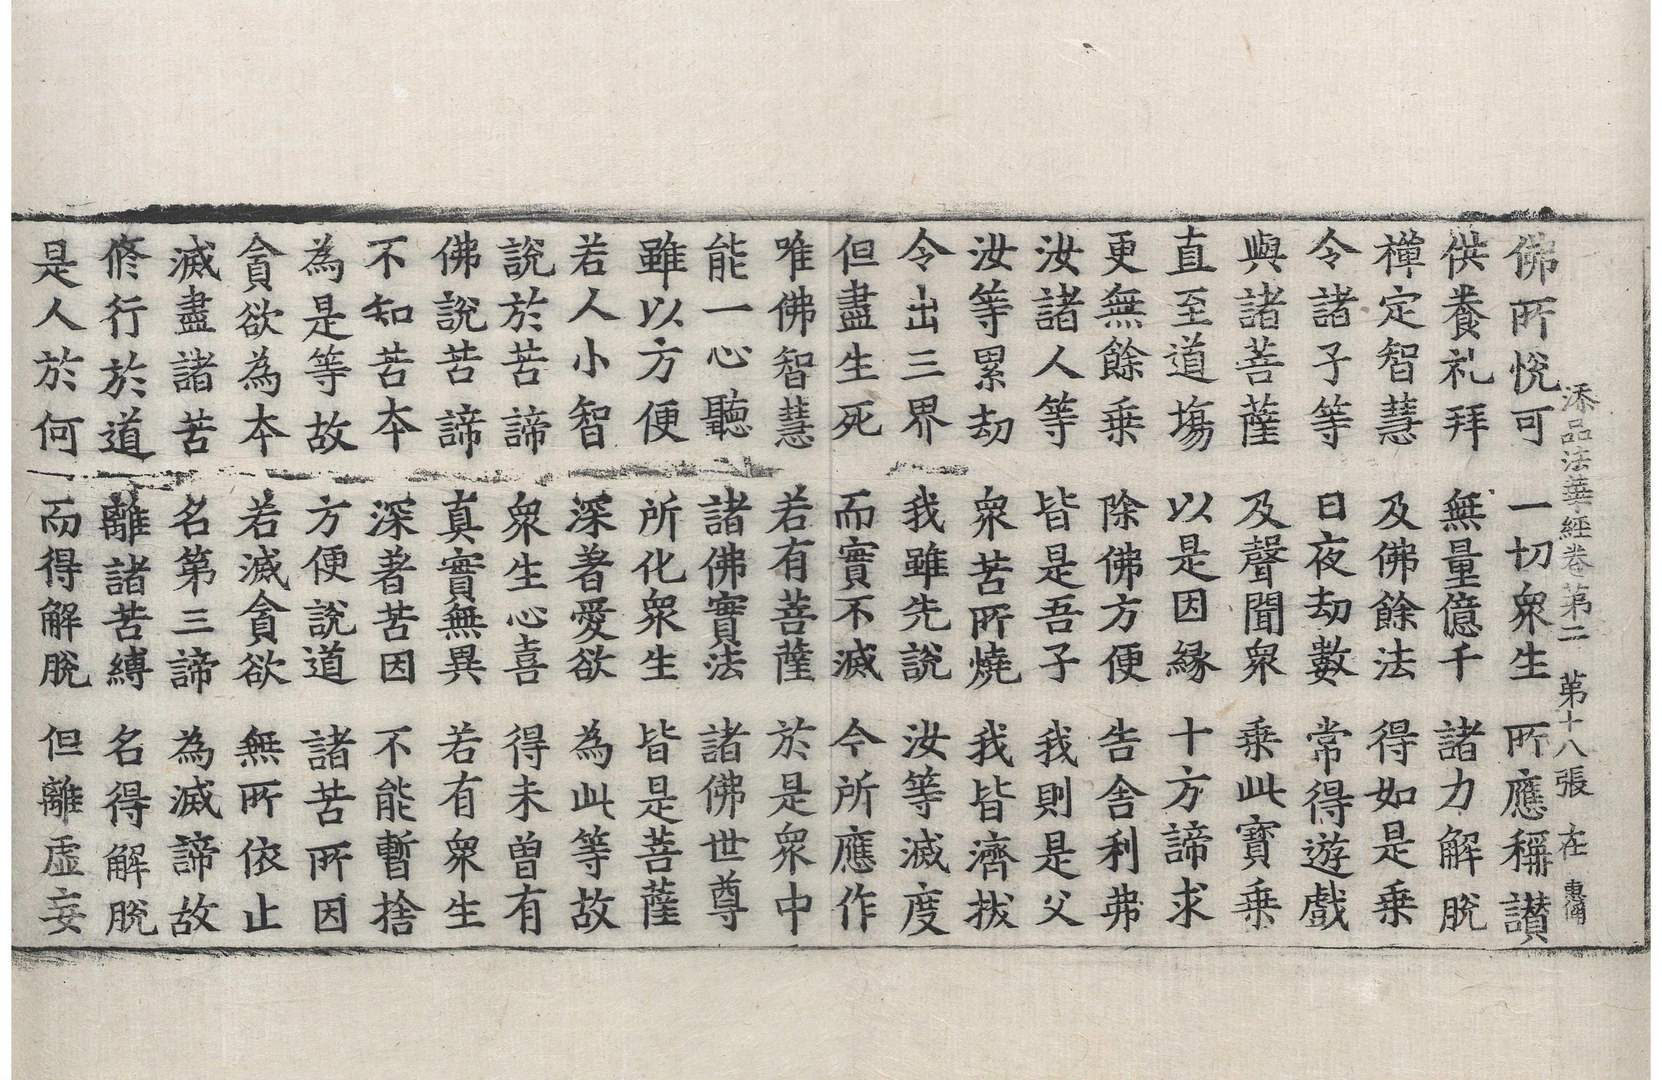 添品法華經卷第二 第十八張 在 惠俌
佛所悅可 一切眾生 所應稱讃
供養礼拜 無量億千 諸力解脫
禪定智慧 及佛餘法 得如是乗
令諸子等 日夜劫數 常得遊戲
與諸菩薩 及聲聞眾 乗此寶乗
直至道場 以是因緣 十方諦求
更無餘乗 除佛方便 告舍利弗
汝諸人等 皆是吾子 我則是父
汝等累劫 眾苦所燒 我皆濟拔
令出三界 我雖先說 汝等滅度
但盡生死 而實不滅 今所應作
唯佛智慧 若有菩薩 於是眾中
能一心聽 諸佛實法 諸佛世尊
雖以方便 所化眾生 皆是菩薩
若人小智 深著愛欲 為此等故
說於苦諦 眾生心喜 得未曾有
佛說苦諦 真實無異 若有眾生
不知苦本 深著苦因 不能暫捨
為是等故 方便說道 諸苦所因
貪欲為本 若滅貪欲 無所依止
滅盡諸苦 名第三諦 為滅諦故
修行於道 離諸苦縛 名得解脫
是人於何 而得解脫 但離虛妄